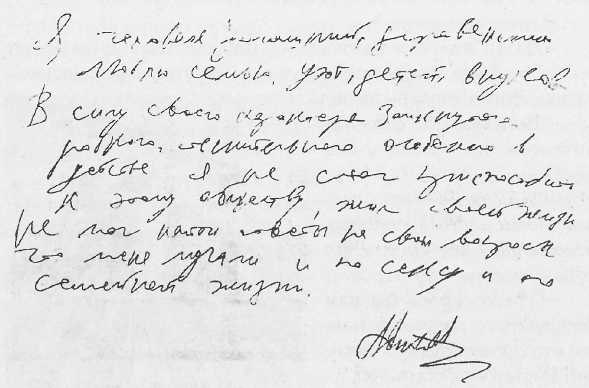 Я человек домашний, деревенский
Люблю семью, уют, детей, внуков
В силу своего характера замкнутого
робкого, стеснительного особенно в
детстве я не смог приспособиться
К этому обществу, жил своей жизнью
Не мог найти ответы на свои вопросы
Что меня мучали и по сексу и по
семейной жизни.